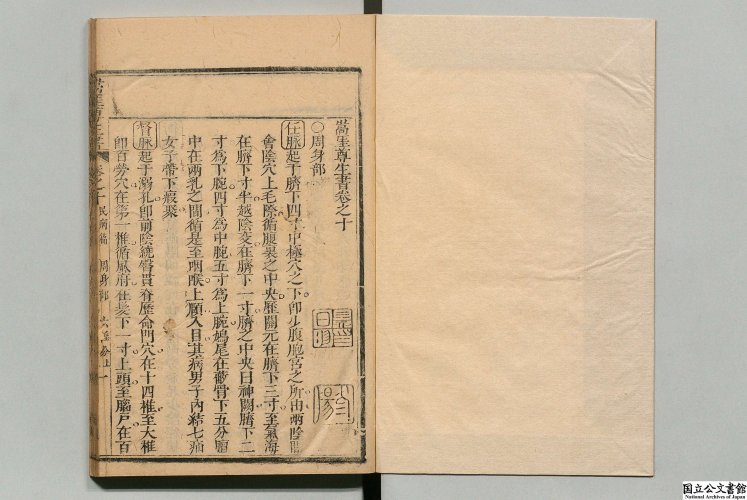 嵩崖尊生書卷之十
○周身部
任脈起于臍下四寸中極穴之下卽少腹胞宮之所由兩陰
會陰穴上毛際循腹裏之中央歷關元在臍下三寸至氣海
在臍下寸半越陰交在臍下一寸臍之中央曰神闕臍下二
寸爲下脘四寸爲中脘五寸爲上脘鳩尾在蔽骨下五分膻
中在兩乳之間循是至咽喉上頤入目其病男子內結七疝
女子帶下瘕聚
督脈起于溺孔卽前陰繞臀貫脊歷命門穴在十四椎至大椎
卽百勞穴在第一椎循風府在髮下一寸上頭至腦戶在百
卷之十 周身部 一
国立公文書館
National Archives of Japan